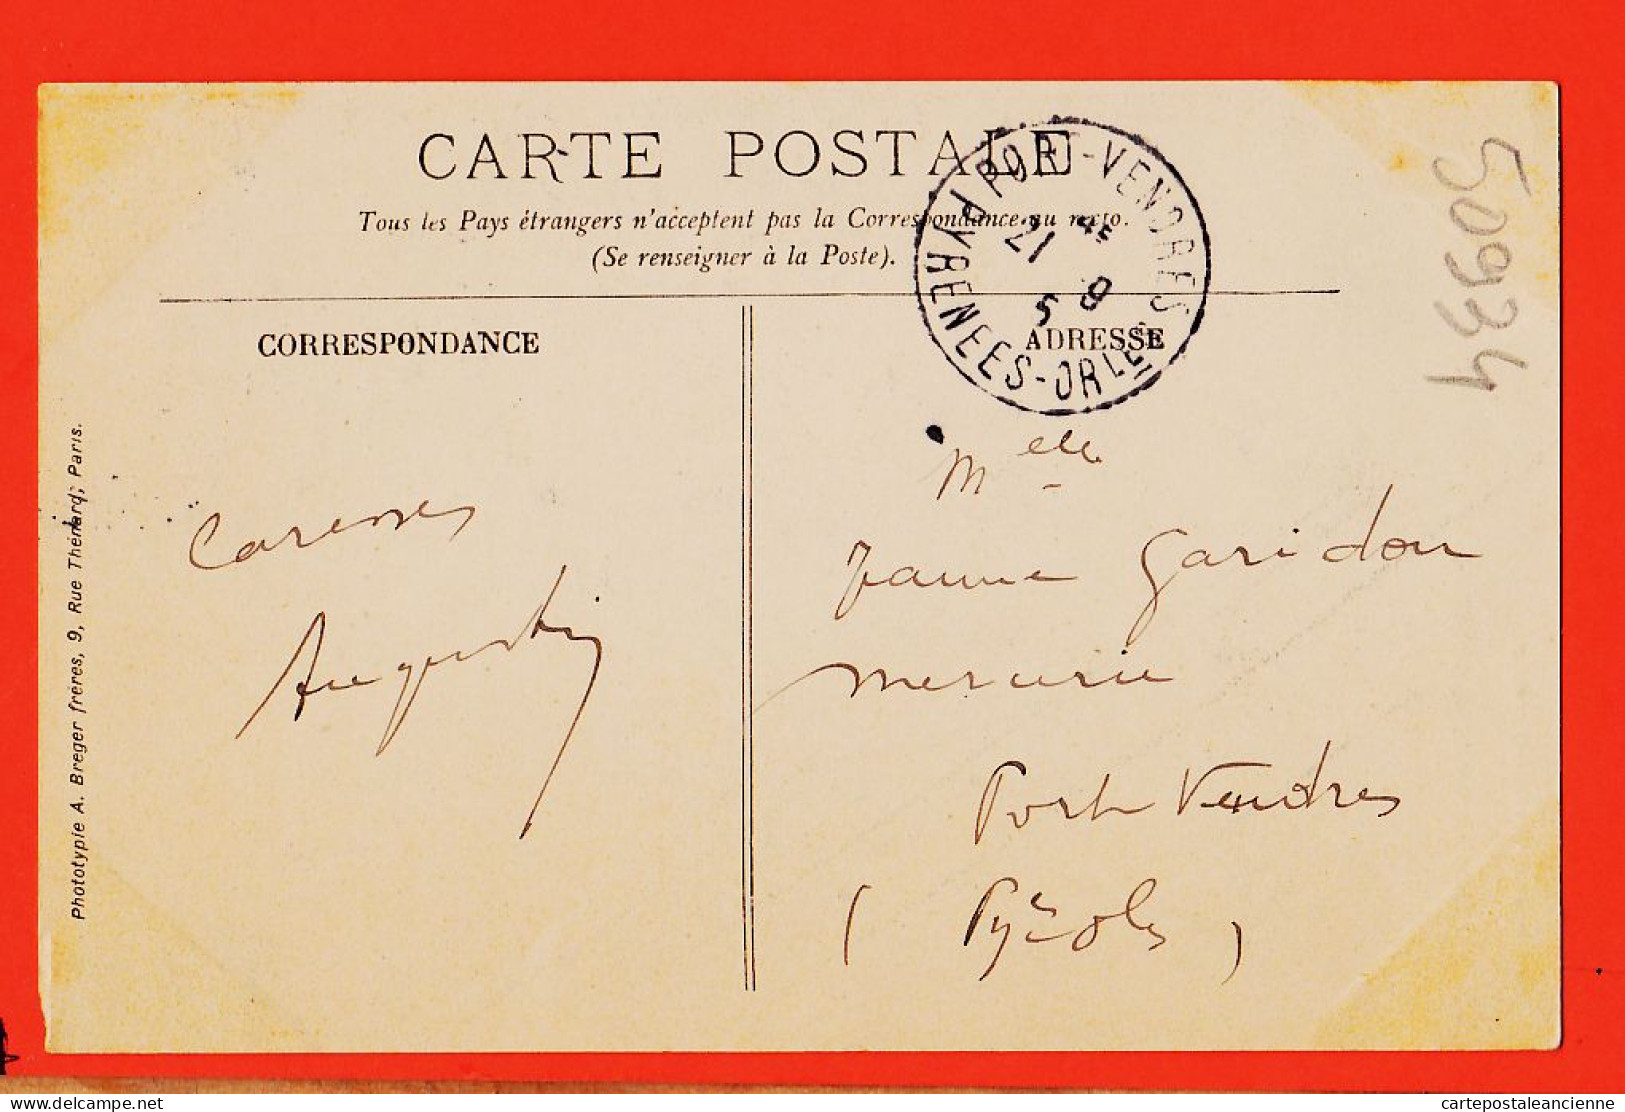 CARTE POSTALE
Tous les Pays étrangers n'acceptent pas la Correspondance au recto.
(Se renseigner à la Poste).
PORT-VENDRES
21 5 9
PYRENEES-ORLES
CORRESPONDANCE
ADRESSE
50934
Caresses
Augustin
Melle
Jeanne Garidou
mercerie
Port Vendres
(Pyrées Oles)
Phototypie A. Breger frères, 9, Rue Thénard, Paris.
delcampe.net
cartepostaleancienne